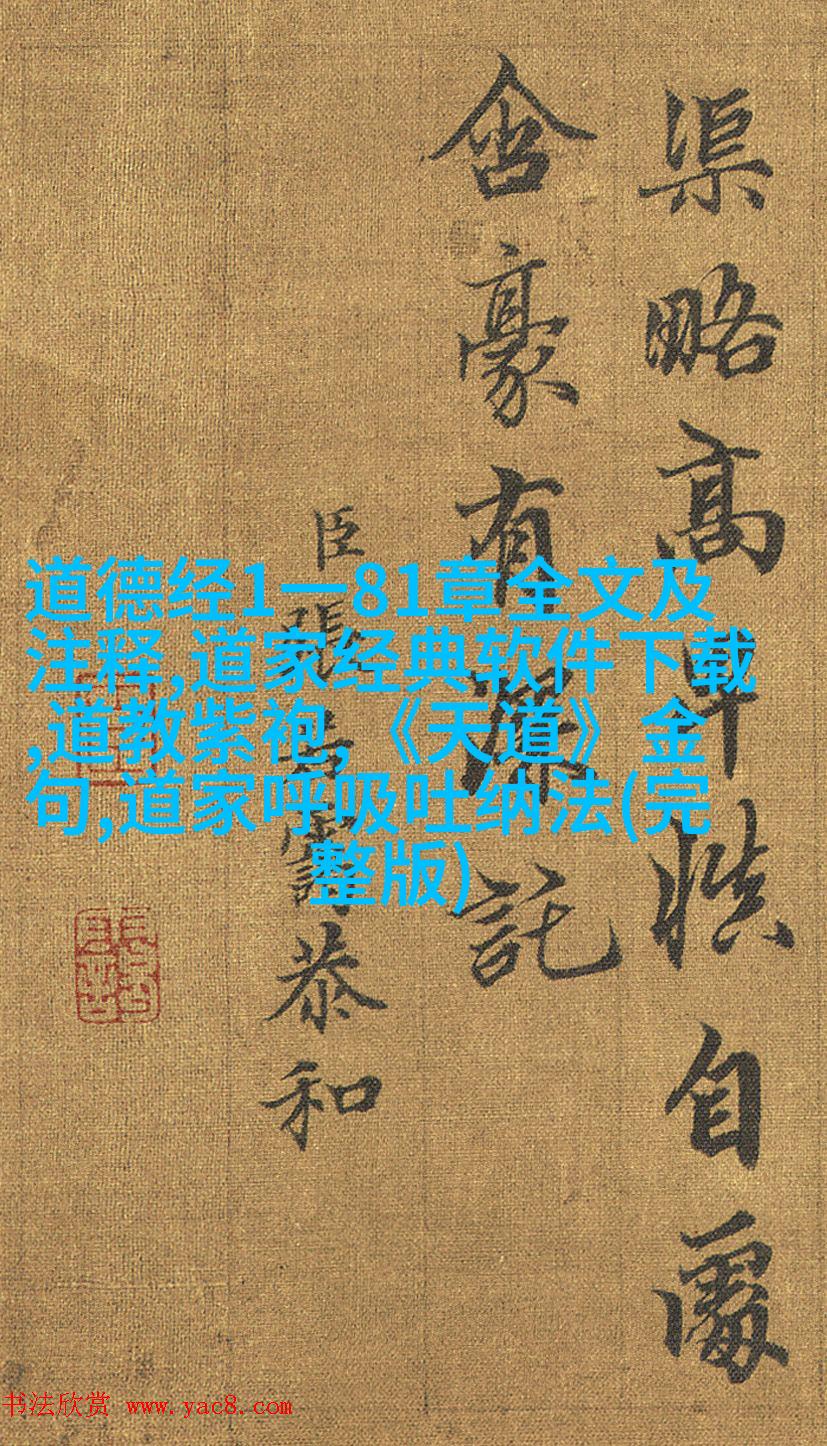 渠略高卑慎自處
含豪有託
臣張若靄恭和
道德经1一81章全文及
注释,道家经典软件下载
,道教紫袍,《天道》金
句,道家呼吸吐纳法(完
整版)
书法欣赏 www.yac8.com